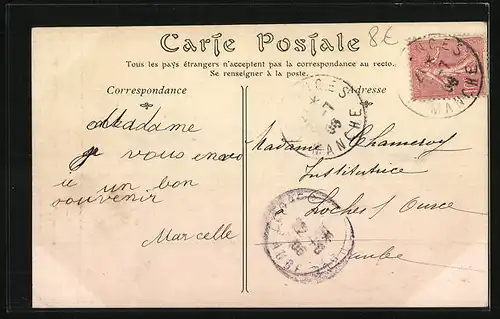 Carte Postale
8€
Tous les pays étrangers n'acceptent pas la correspondance au recto.
Se renseigner à la poste.
Correspondance
Adresse
Madame
je vous envo
ie un bon
souvenir
Marcelle
Madame Chameroy
Institutrice
Loches s/ Ource
Aube
MANCHE
MANCHE
AUBE